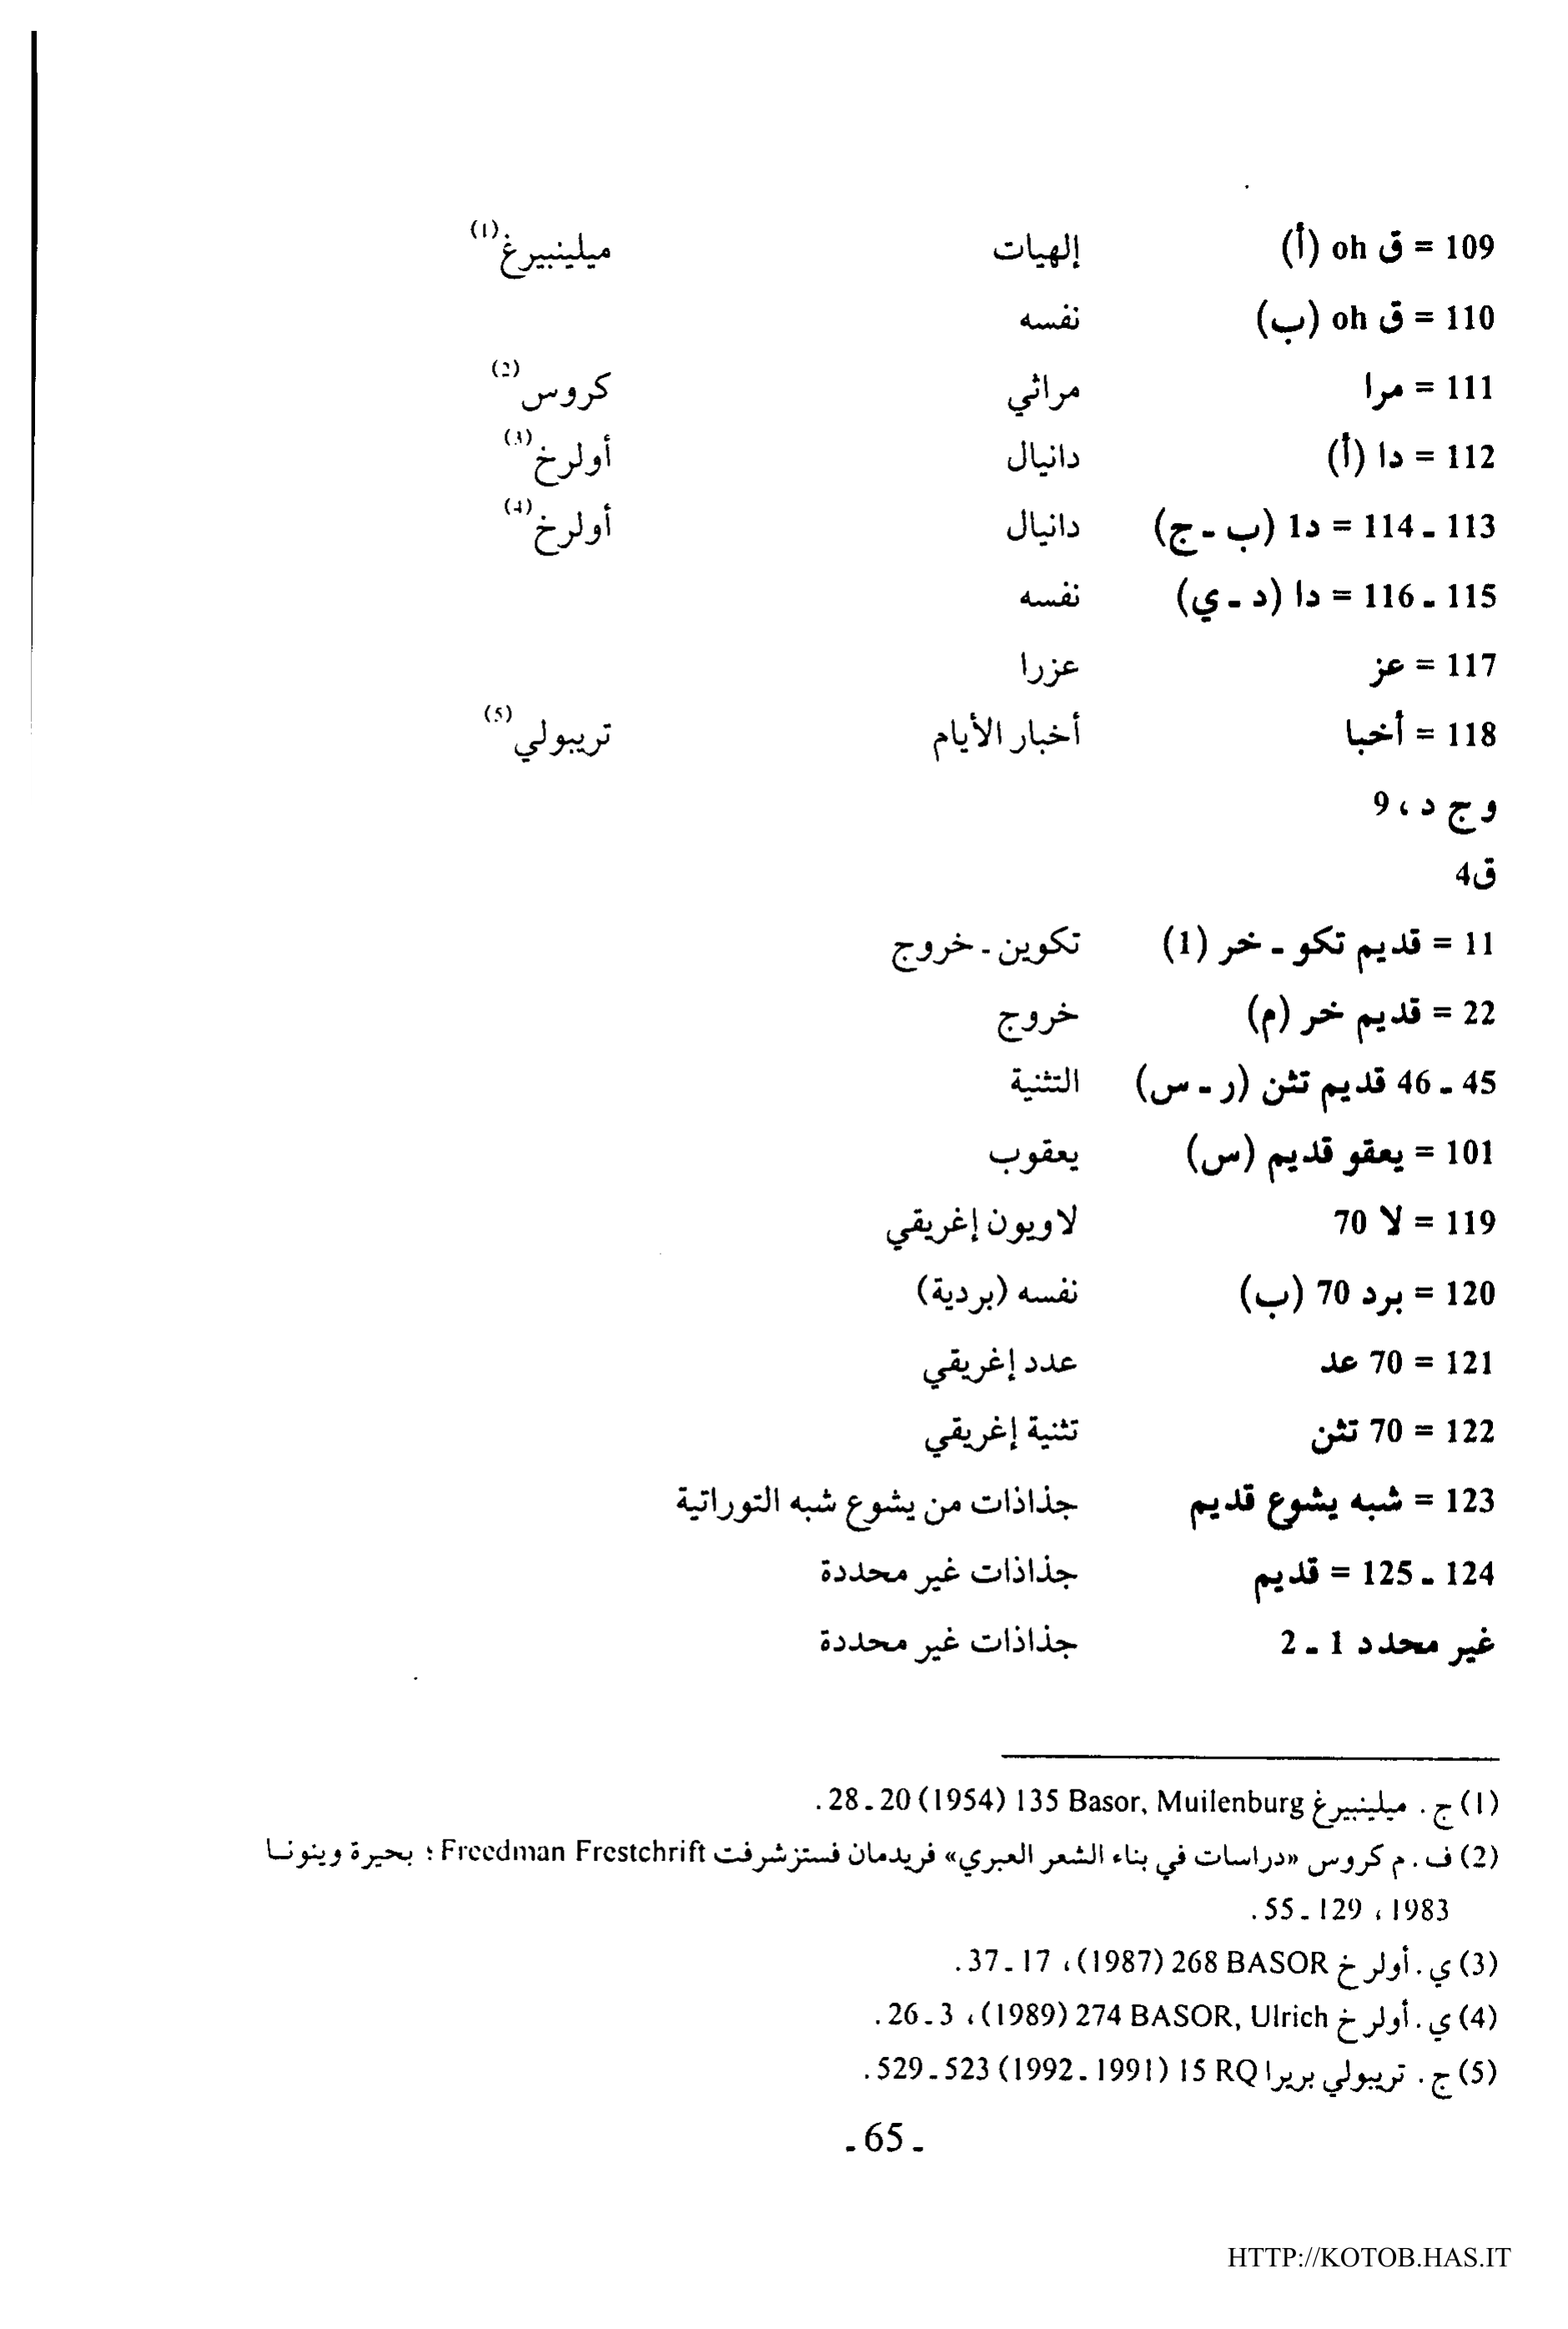 109 = ق oh (أ) إلهيات ميلينبيرغ(1)
110 = ق oh (ب) نفسه
111 = مرا مراثي كروس(2)
112 = دا (أ) دانيال أولرخ(3)
113 ـ 114 = دا (ب ـ ج) دانيال أولرخ(4)
115 ـ 116 = دا (د ـ ي) نفسه
117 = عز عزرا
118 = أخبا أخبار الأيام تريبولي(5)
و ج د ، 9
ق4
11 = قديم تكو ـ خر (1) تكوين ـ خروج
22 = قديم خر (م) خروج
45 ـ 46 قديم تثن (ر ـ س) التثنية
101 = يعقو قديم (س) يعقوب
119 = لا 70 لاويون إغريقي
120 = برد 70 (ب) نفسه (بردية)
121 = 70 عد عدد إغريقي
122 = 70 تثن تثنية إغريقي
123 = شبه يشوع قديم جذاذات من يشوع شبه التوراتية
124 ـ 125 = قديم جذاذات غير محددة
غير محدد 1 ـ 2 جذاذات غير محددة
(1) ج . ميلينبيرغ Basor, Muilenburg 135 (1954) 20 ـ 28 .
(2) ف . م كروس «دراسات في بناء الشعر العبري» فريدمان فستزشرفت Freedman Frestchrift ؛ بحيرة وينونا
1983 ، 129 ـ 55 .
(3) ي . أولرخ BASOR 268 (1987) ، 17 ـ 37 .
(4) ي . أولرخ BASOR, Ulrich 274 (1989) ، 3 ـ 26 .
(5) ج . تريبولي بريرا RQ 15 (1991 ـ 1992) 523 ـ 529 .
ـ 65 ـ
HTTP://KOTOB.HAS.IT